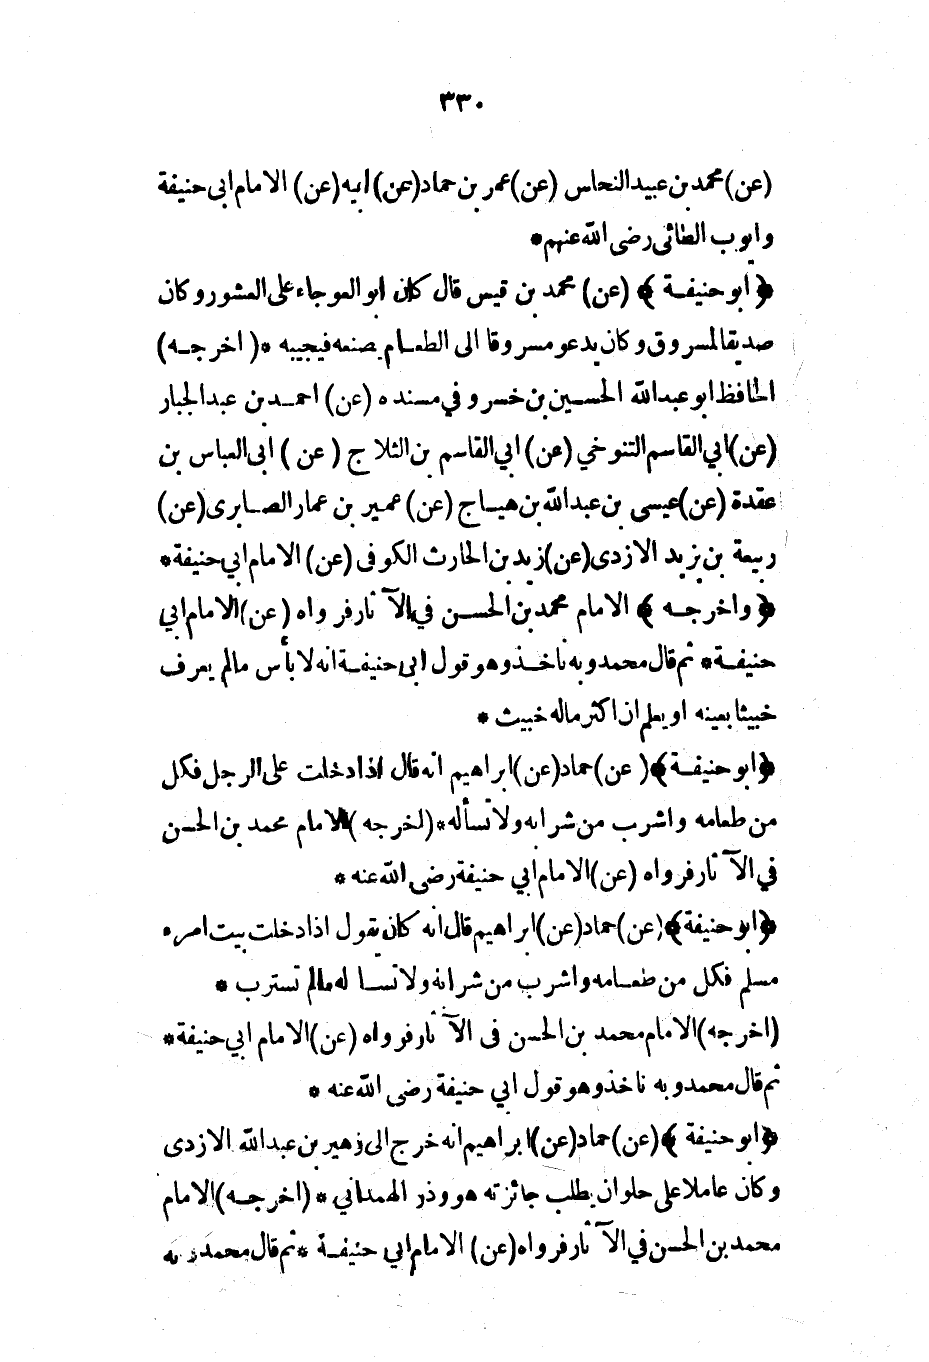 ٣٣٠
(عن) محمد بن عبيد النحاس (عن) عمر بن حماد (عن) ابيه (عن) الامام ابى حنيفة
وايوب الطائى رضى الله عنهم *
﴿ ابو حنيفة ﴾ (عن) محمد بن قيس قال كان ابو العوجاء على العشور وكان
صديقا لمسروق وكان يدعو مسروقا الى الطعام يصنعه فيجيبه * (اخرجه)
الحافظ ابو عبدالله الحسين بن خسرو في مسنده (عن) احمد بن عبدالجبار
(عن) ابي القاسم التنوخي (عن) ابي القاسم بن الثلاج (عن) ابى العباس بن
عقدة (عن) عيسى بن عبدالله بن هياج (عن) عمير بن عمار الصابرى (عن)
ربيعة بن يزيد الازدى (عن) زيد بن الحارث الكوفى (عن) الامام ابي حنيفة *
﴿ واخرجه ﴾ الامام محمد بن الحسن في الآثار فرواه (عن) الامام ابي
حنيفة * ثم قال محمد وبه ناخذ وهو قول ابى حنيفة انه لا بأس مالم يعرف
خبيثا بعينه او يعلم ان اكثر ماله خبيث *
﴿ ابو حنيفة ﴾ (عن) حماد (عن) ابراهيم انه قال اذا دخلت على الرجل فكل
من طعامه واشرب من شرابه ولا تسأله * (اخرجه) الامام محمد بن الحسن
في الآثار فرواه (عن) الامام ابي حنيفة رضى الله عنه *
﴿ ابو حنيفة ﴾ (عن) حماد (عن) ابراهيم قال انه كان يقول اذا دخلت بيت امرء
مسلم فكل من طعامه واشرب من شرابه ولا تسا له مالم تسترب *
(اخرجه) الامام محمد بن الحسن فى الآثار فرواه (عن) الامام ابي حنيفة *
ثم قال محمد وبه ناخذ وهو قول ابي حنيفة رضى الله عنه *
﴿ ابو حنيفة ﴾ (عن) حماد (عن) ابراهيم انه خرج الى زهير بن عبدالله الازدى
وكان عاملا على حلوان يطلب جائزته هو وذر الهمداني * (اخرجه) الامام
محمد بن الحسن في الآثار فرواه (عن) الامام ابي حنيفة * ثم قال محمد وبه